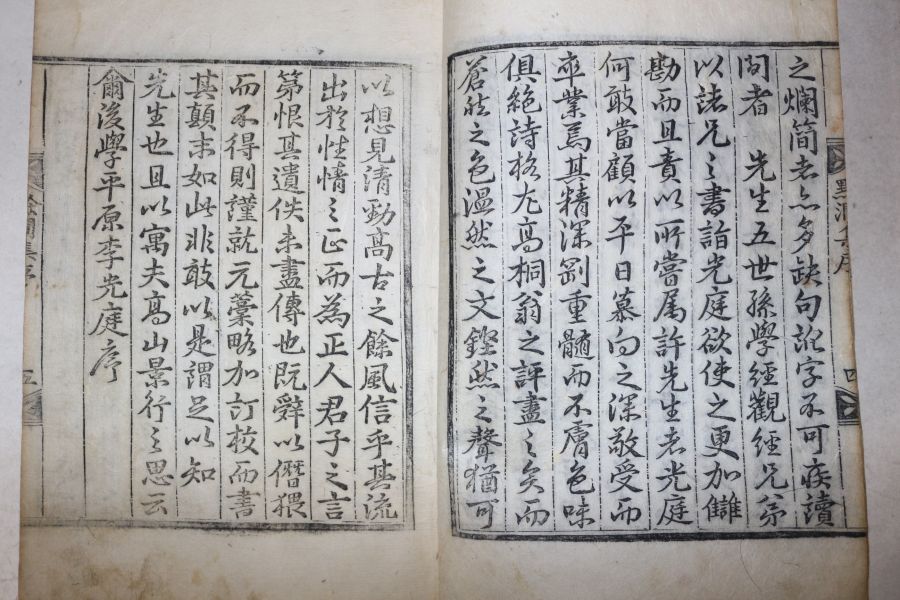 之爛簡者亦多缺句訛字不可疾讀
間者　先生五世孫學經觀經兄弟
以諸兄之書詣光庭欲使之更加讎
勘而且責以所嘗屬許先生者光庭
何敢當顧以平日慕向之深敬受而
卒業焉其精深劌重髓而不膚色味
俱絶詩格尤高桐翁之評盡之矣而
蒼然之色溫然之文鏗然之聲猶可
以想見清勁高古之餘風信乎其流
出於性情之正而為正人君子之言
第恨其遺佚未盡傳也旣辭以僭猥
而不得則謹就元藁略加訂校而書
其顛末如此非敢以是謂足以知
先生也且以寓夫高山景行之思云
爾後學平原李光庭序
四
五